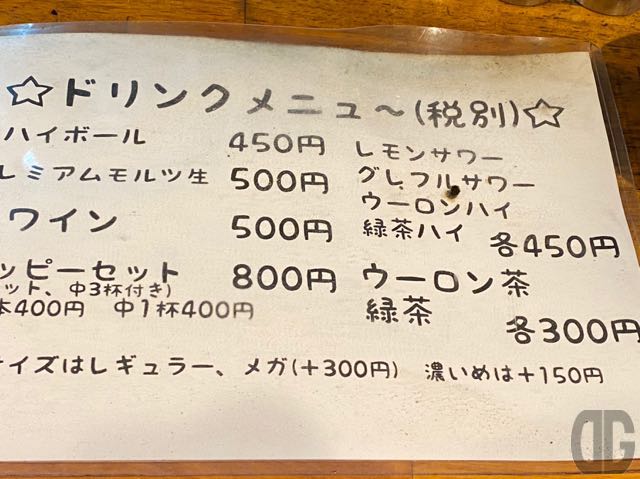 ☆ドリンクメニュ〜(税別)☆
ハイボール 450円
レミアムモルツ生 500円
ワイン 500円
ッピーセット 800円
ット、中3杯付き)
本400円 中1杯400円
レモンサワー
グレフルサワー
ウーロンハイ
緑茶ハイ 各450円
ウーロン茶
緑茶 各300円
イズはレギュラー、メガ(+300円) 濃いめは+150円
DG